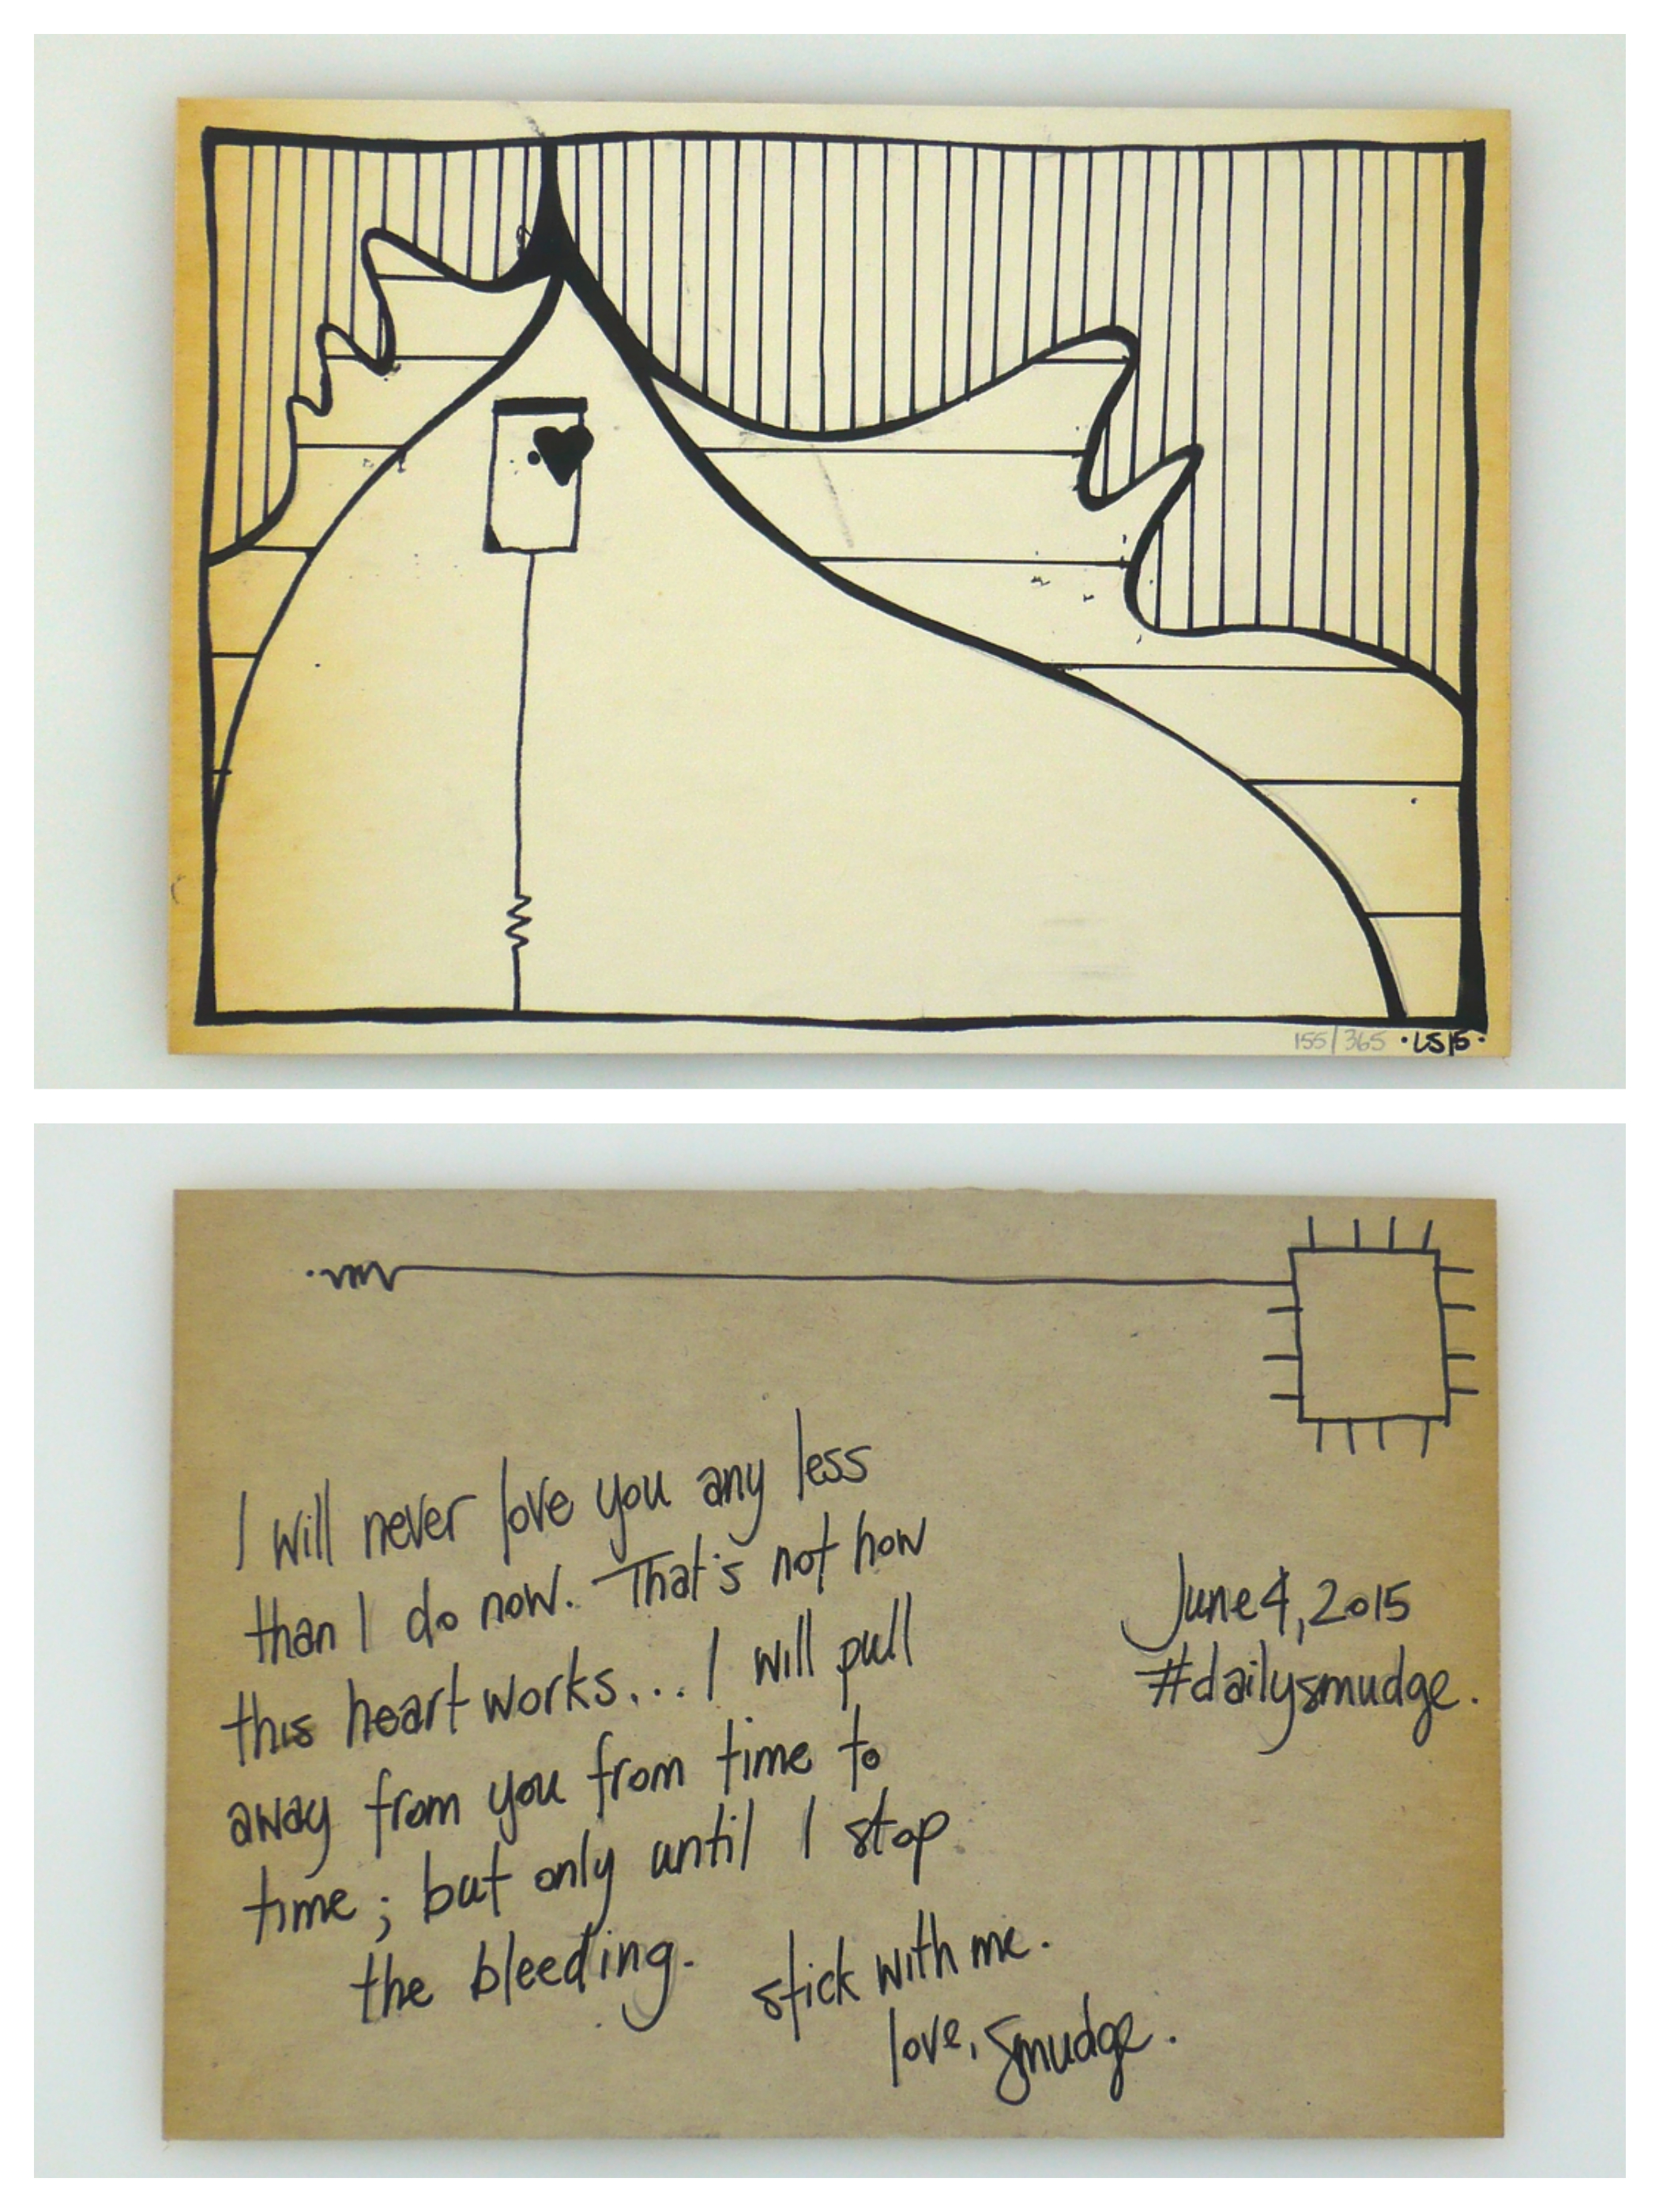 155/365 ·LS15·
I will never love you any less
than I do now. That's not how
this heart works... I will pull
away from you from time to
time; but only until I stop
the bleeding.
stick with me.
love, smudge.
June 4, 2015
#dailysmudge.